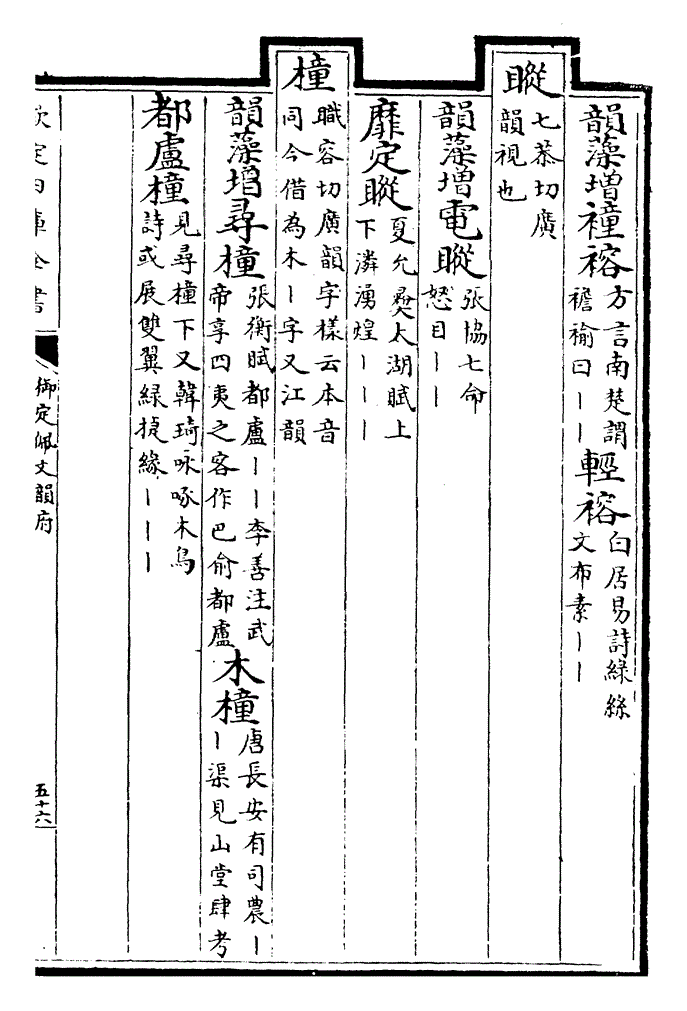 韻藻增褈褣方言南楚謂
襜褕曰丨丨輕褣白居易詩綠絲
文布素丨丨
瞛七恭切廣
韻視也
韻藻增電瞛張協七命
怒目丨丨
靡定瞛夏允彝太湖賦上
下潾湧煌丨丨丨
橦職容切廣韻字樣云本音
同今借為木丨字又江韻
韻藻增尋橦張衡賦都盧丨丨李善注武
帝享四夷之客作巴俞都盧木橦唐長安有司農丨
丨渠見山堂肆考
都盧橦見尋橦下又韓琦咏啄木鳥
詩或展雙翼綠捷緣丨丨丨
欽定四庫全書
御定佩文韻府
五十六